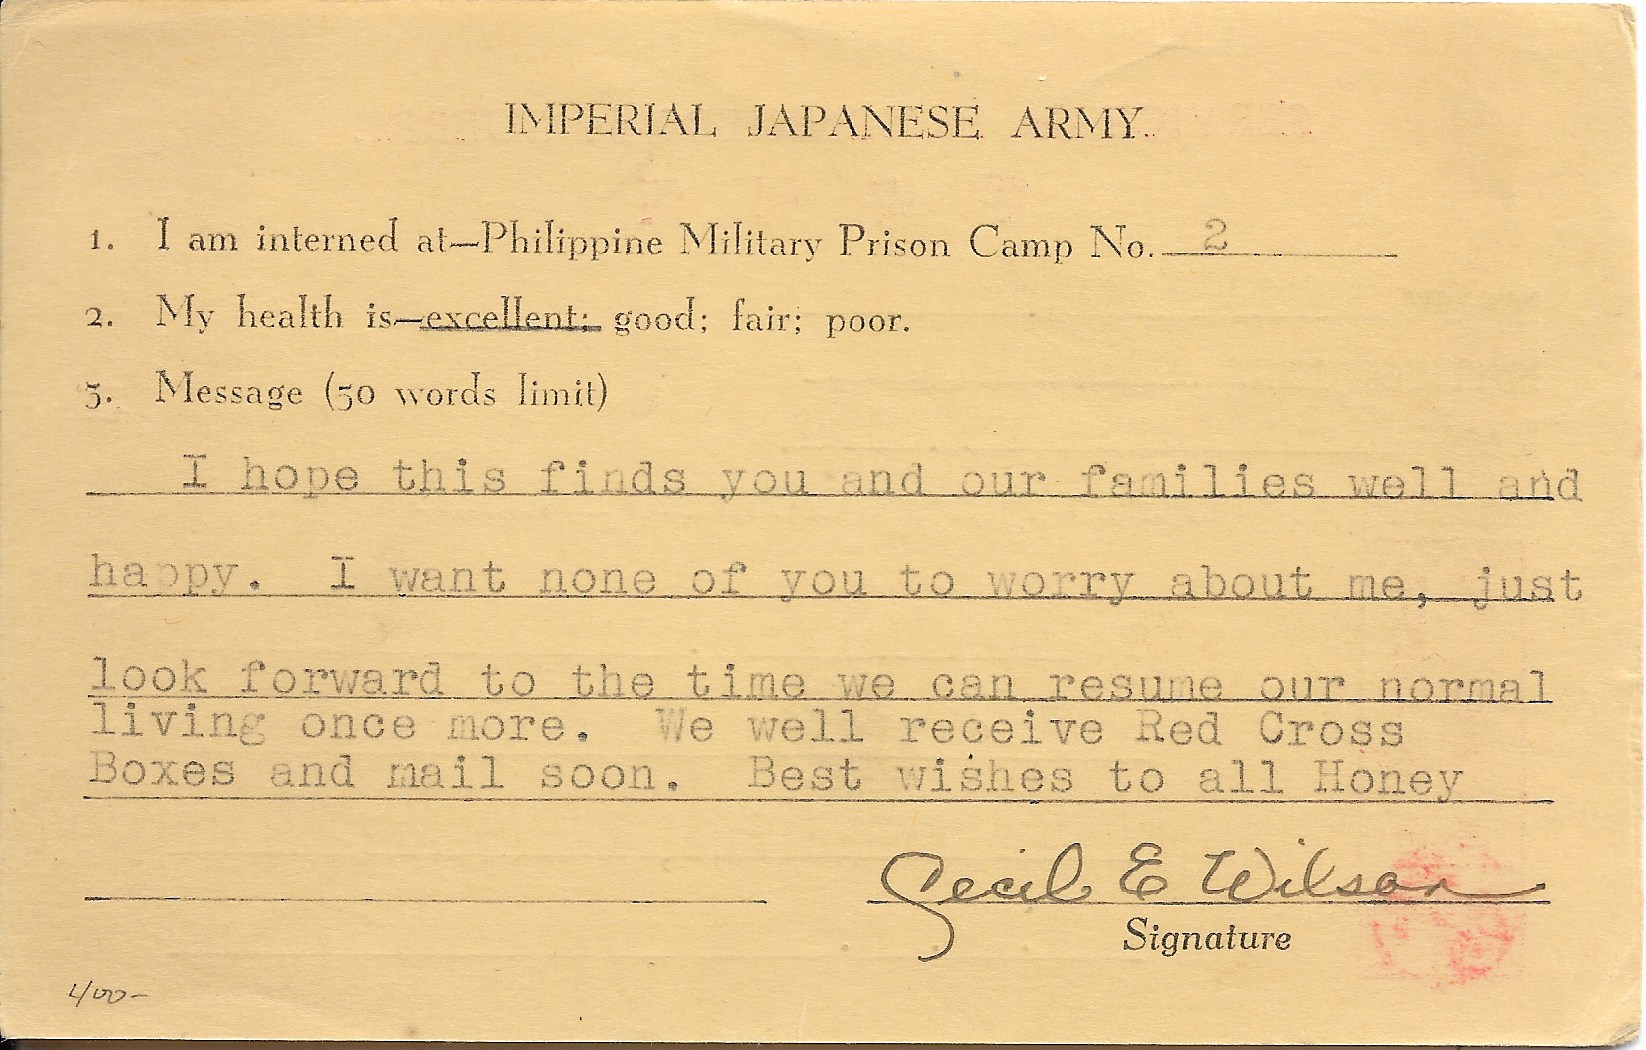 IMPERIAL JAPANESE ARMY
1. I am interned at—Philippine Military Prison Camp No. 2
2. My health is—excellent; good; fair; poor.
3. Message (50 words limit)
I hope this finds you and our families well and
happy. I want none of you to worry about me, just
look forward to the time we can resume our normal
living once more. We well receive Red Cross
Boxes and mail soon. Best wishes to all Honey
Cecil E Wilson
Signature
400-